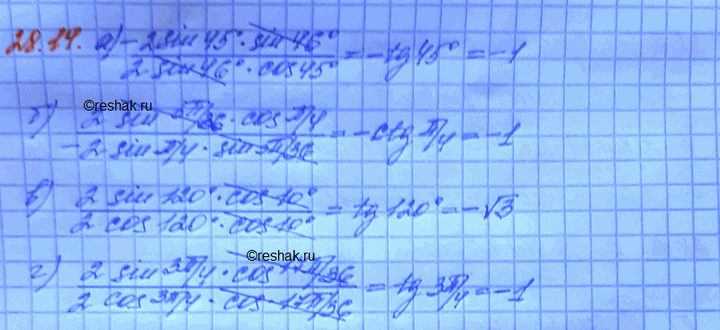 28.14. а) -2 sin 45° · sin 46° / 2 sin 46° · cos 45° = -tg 45° = -1
©reshak.ru
б) 2 sin 5π/36 · cos π/4 / -2 sin π/4 · sin 5π/36 = -ctg π/4 = -1
в) 2 sin 120° · cos 10° / 2 cos 120° · cos 10° = tg 120° = -√3
©reshak.ru
г) 2 sin 3π/4 · cos 17π/36 / 2 cos 3π/4 · cos 17π/36 = tg 3π/4 = -1